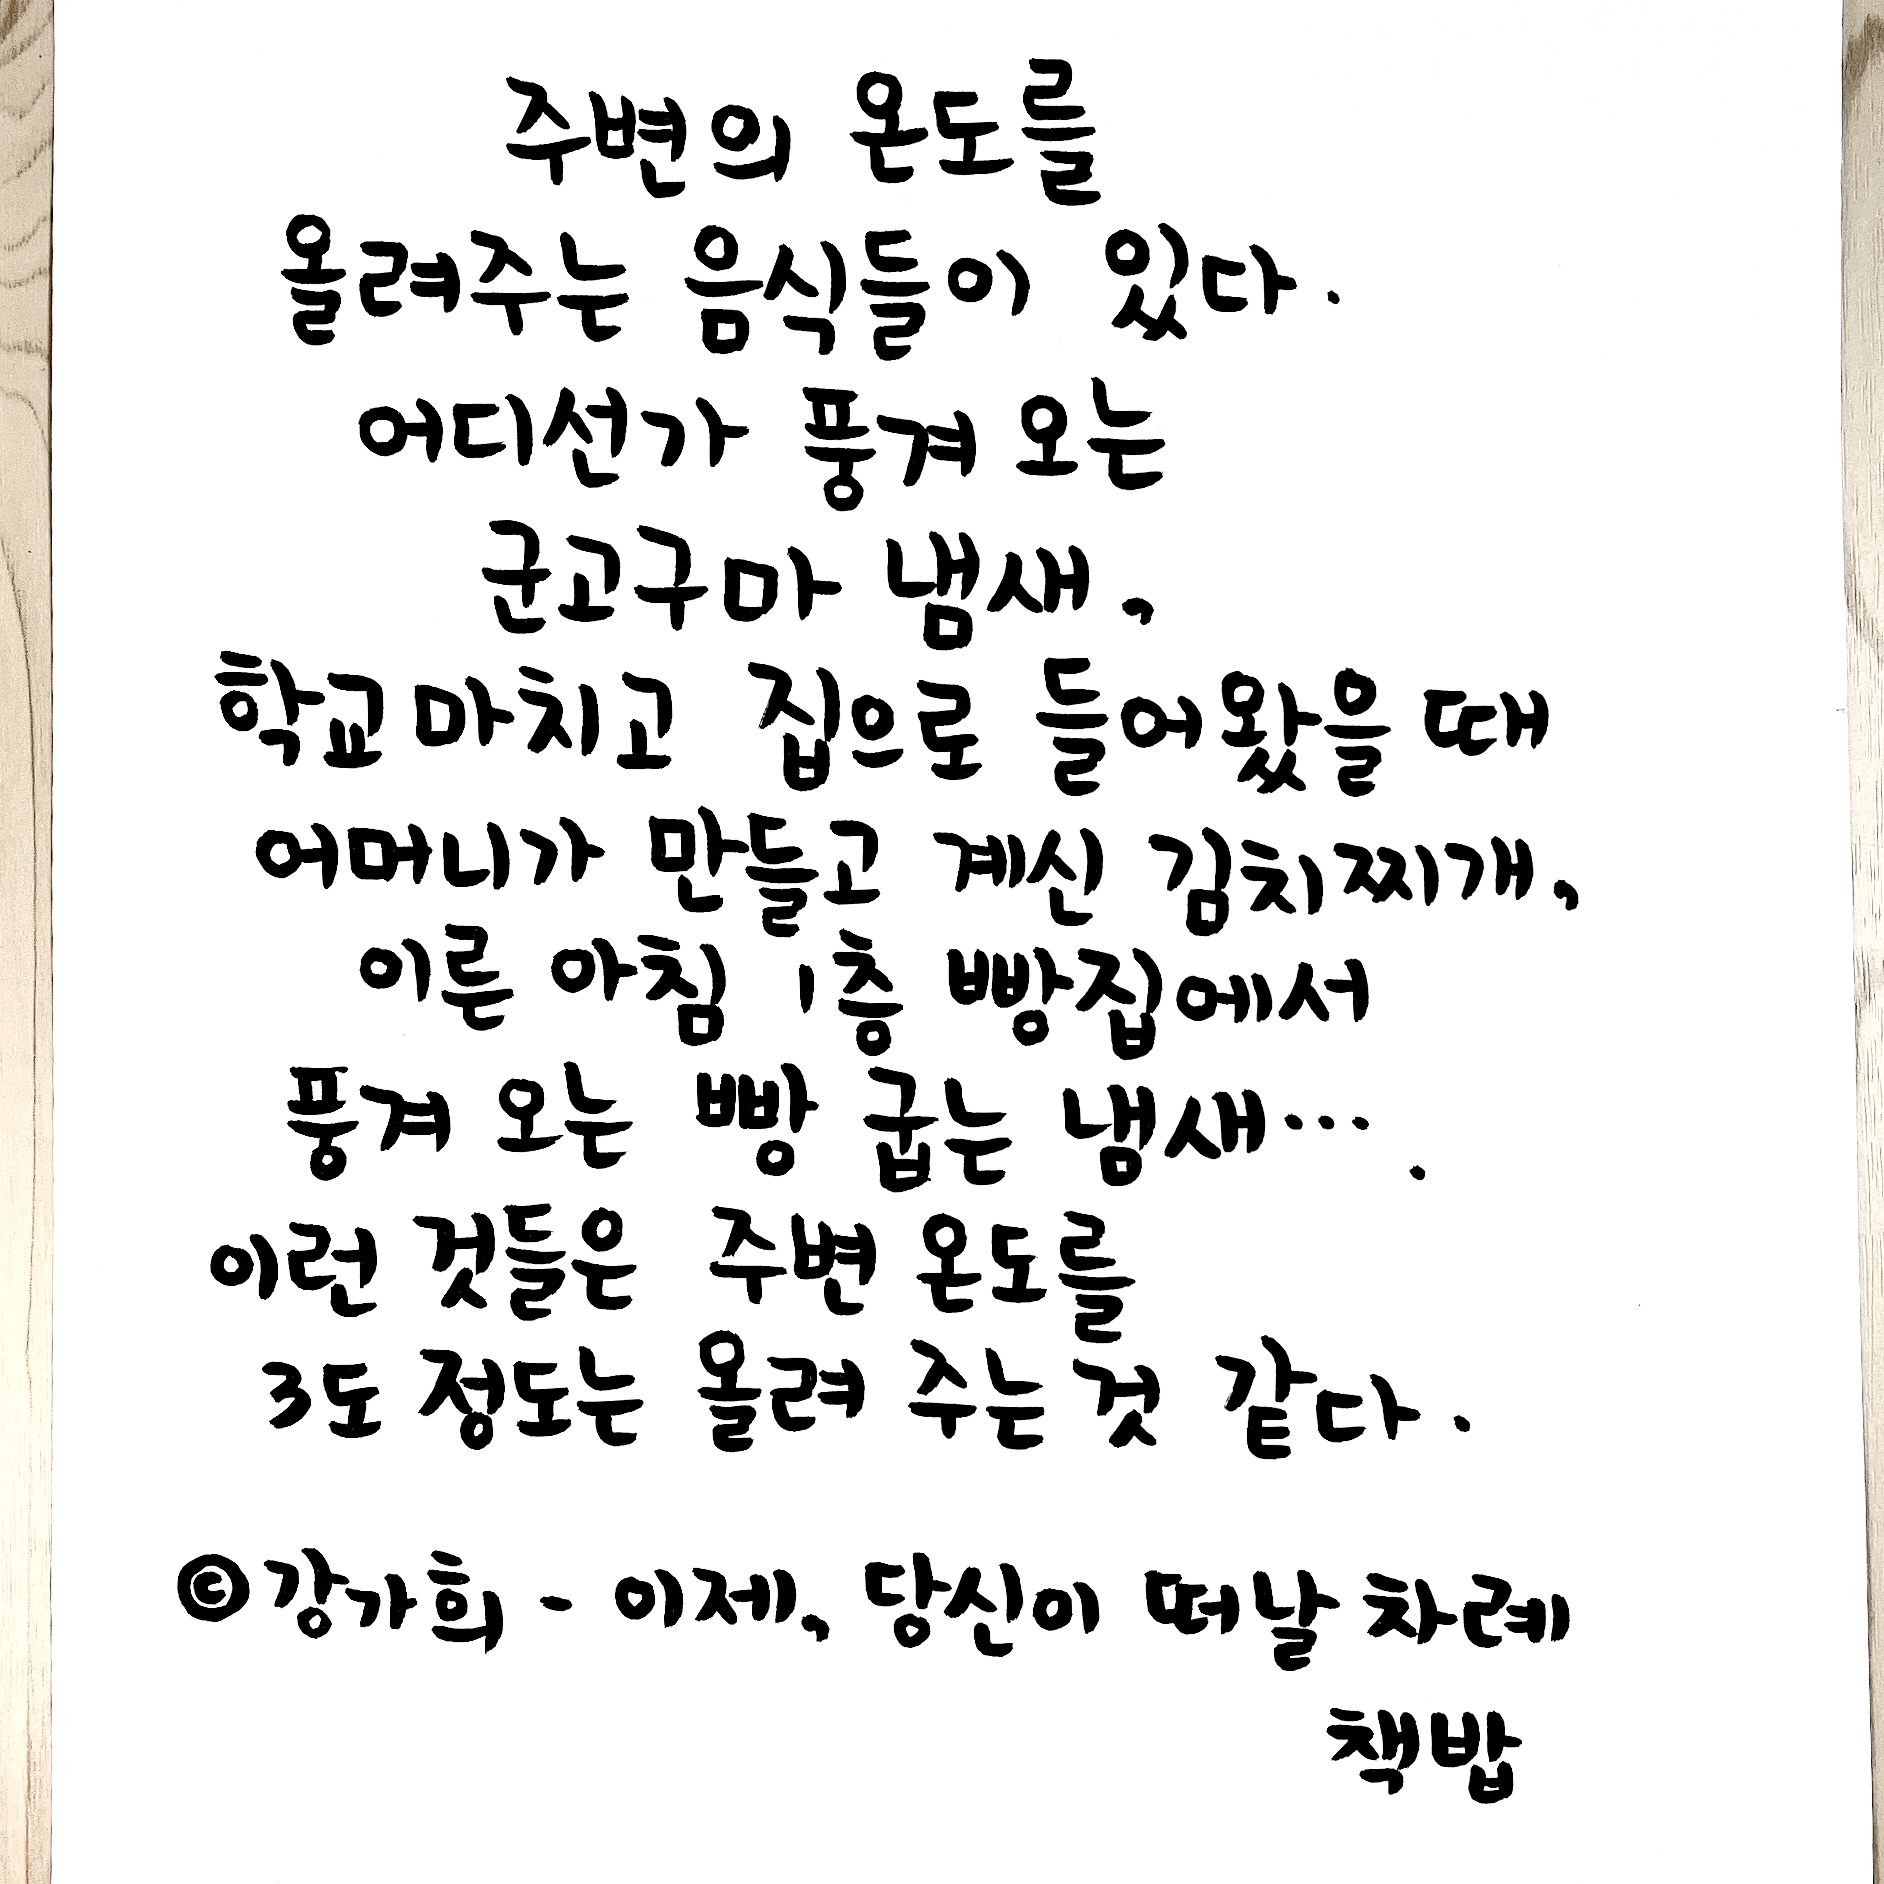 주변의 온도를
올려주는 음식들이 있다.
어디선가 풍겨 오는
군고구마 냄새,
학교 마치고 집으로 들어왔을 때
어머니가 만들고 계신 김치찌개,
이른 아침 1층 빵집에서
풍겨 오는 빵 굽는 냄새… .
이런 것들은 주변 온도를
3도 정도는 올려 주는 것 같다.
©강가희 - 이제, 당신이 떠날 차례
책밥